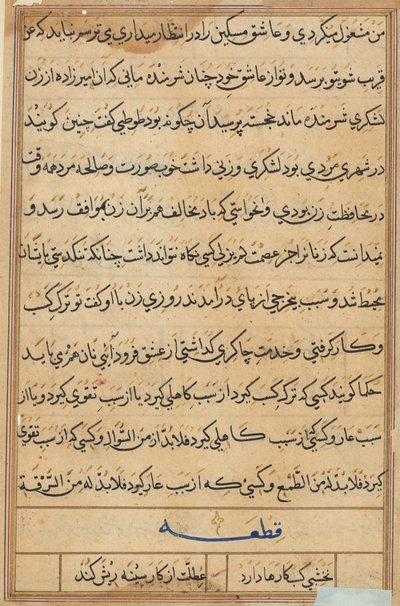 من مشغول میکردی و عاشق مسکین را در انتظار میداری می ترسم باید که عن
قریب شوی تو برسد و تو از عاشق خود چنان شرمنده مانی که آن امیرزاده از زن
لشکری شرمنده ماند خجسته پرسید آن چگونه بود طوطی گفت چنین گویند
در شهری مردی بود لشکری و زنی داشت خوب صورت و صالحه مرد همه وقت
در محافظت زن بودی و نخواستی که باد مخالف هم بر آن زن موافق رسد و
نمیدانست که زنان را جز عصمت غریزی کسی نگاه نتواند داشت چنانکه تنکدستی بایشان
محیط شد و سبب بیخرجی از پای درآمدند روزی زن با او گفت تو ترک کسب
و کار گرفتی و خدمت چاکری گذاشتی از عشق فرود آئی نان هم می باید
حکما گویند کسی که ترک کسب گیرد از سبب کاهلی گیرد یا از سبب تقوی گیرد و یا از
سبب عار و کسی از سبب کاهلی گیرد فلا بد له من السؤال و کسی که از سبب تقوی
گیرد فلا بد له من الطمع و کسی که از سبب عار گیرد فلا بد له من السرقة
قطعه
نخشبی کسب کارها دارد عطلت از کار سینه ریش کند